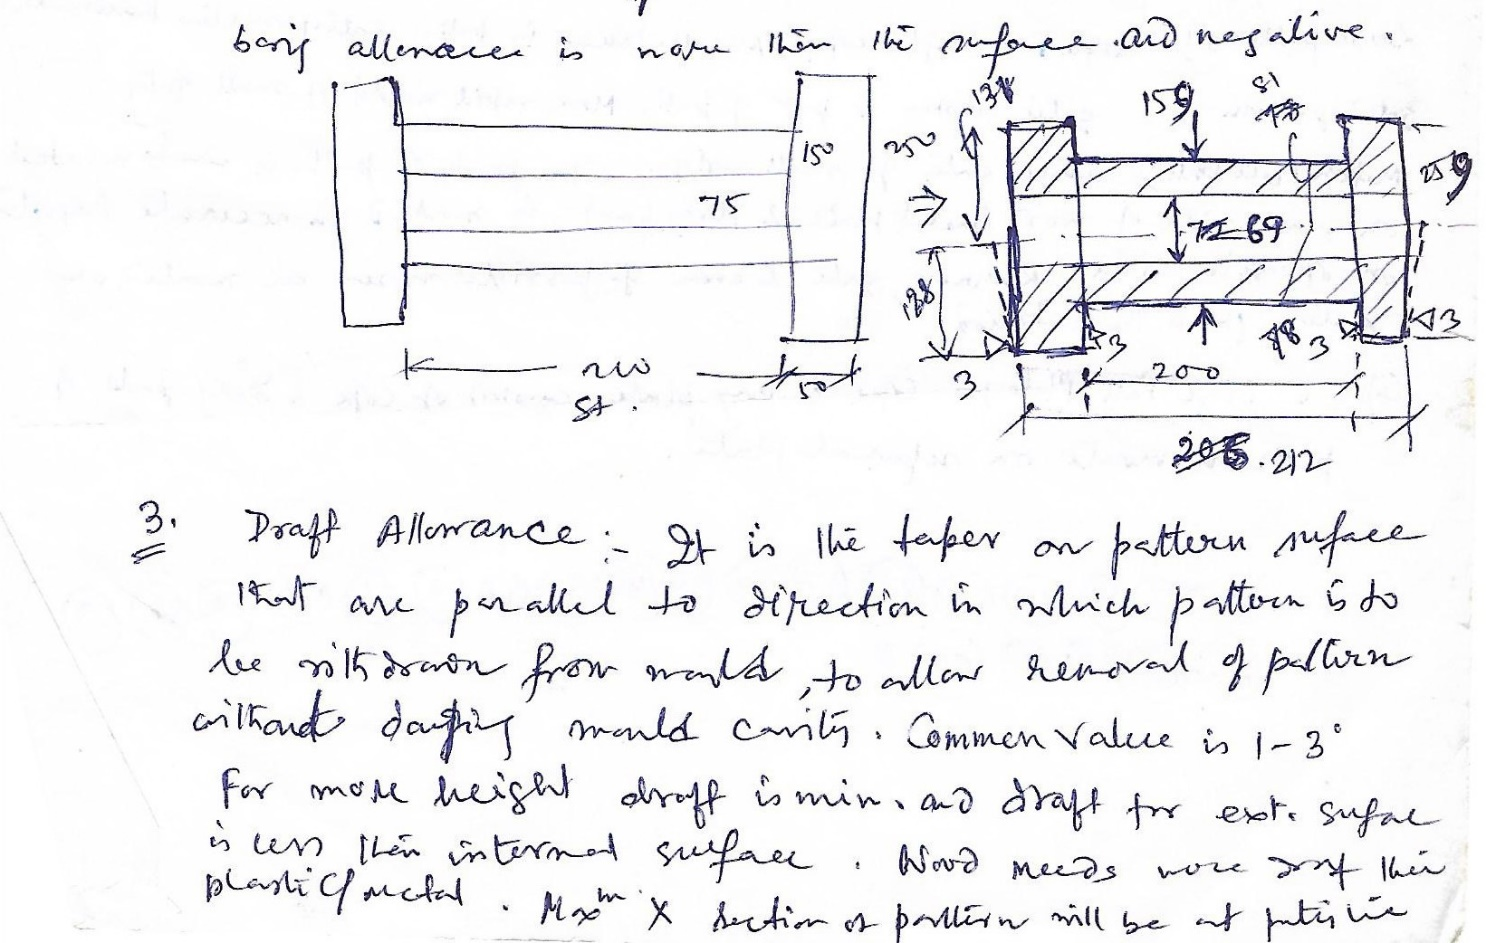 boring allowance is more then the surface and negative.
150
250
75
200
St.
50
138
159
51
259
69
138
3
3
3
3
200
206.212
3. Draft Allowance :- It is the taper on pattern suface
that are parallel to direction in which pattern is to
be withdrawn from mould, to allow removal of pattern
without damaging mould cavity. Common Value is 1-3°
For more height draft is min. and draft for ext. sufac
is less then internal surface. Wood needs more draf then
plastic/metal. Maxm X Section of pattern will be at